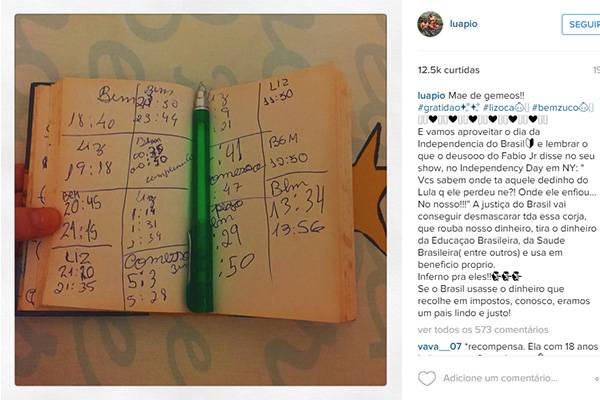 Bem
18:40
Liz
19:18
Bem
20:45
21:15
LIZ
21:20
21:35
Bem
23:44
Liz
1:31
Comessa
5:28
41
47
:29
:50
LIZ
11:50
BEM
Bem
13:34
13:56
luapio
SEGUIR
12.5k curtidas
luapio Mae de gemeos!!
#gratidao #lizoca #bemzuco
E vamos aproveitar o dia da
Independencia do Brasil e lembrar o
que o deusooo do Fabio Jr disse no seu
show, no Independency Day em NY: "
Vcs sabem onde ta aquele dedinho do
Lula q ele perdeu ne?! Onde ele enfiou...
No nosso!!!" A justiça do Brasil vai
conseguir desmascarar tda essa corja,
que rouba nosso dinheiro, tira o dinheiro
da Educaçao Brasileira, da Saude
Brasileira( entre outros) e usa em
beneficio proprio.
Inferno pra eles!!
Se o Brasil usasse o dinheiro que
recolhe em impostos, conosco, eramos
um pais lindo e justo!
ver todos os 573 comentários
vava__07 *recompensa. Ela com 18 anos
Adicione um comentário...